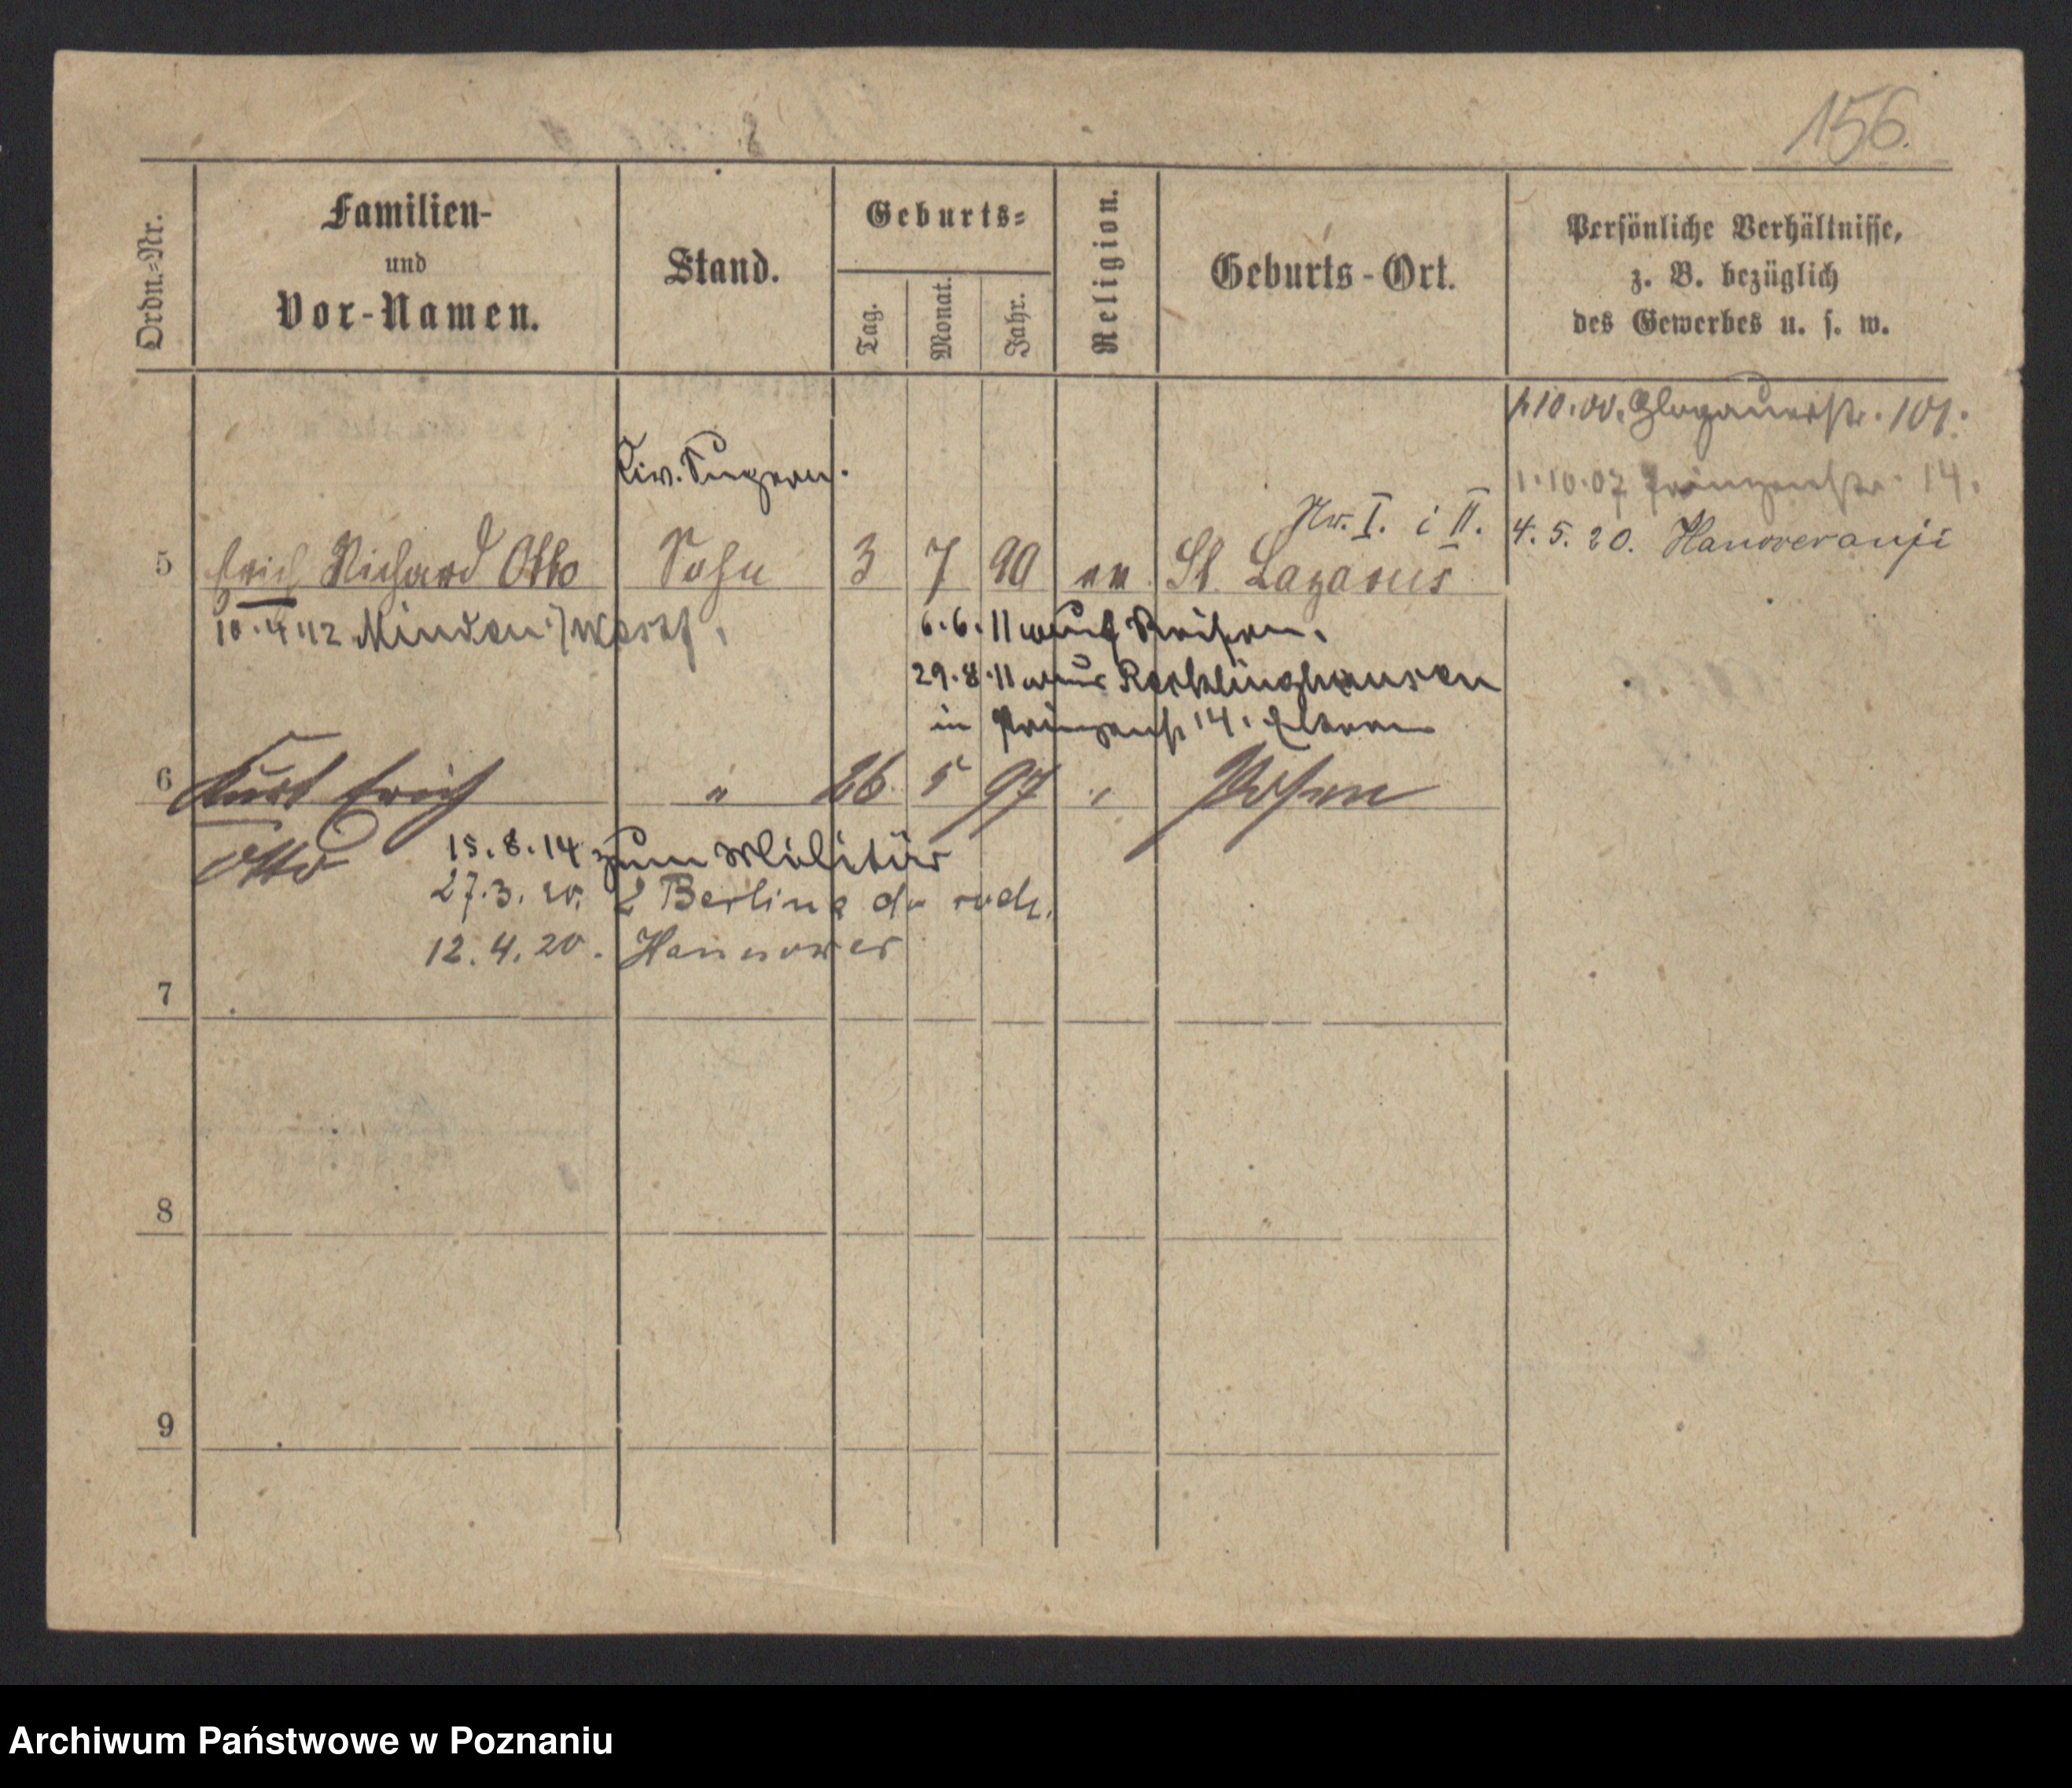 156.
Ordn.=Nr.
Familien-
und
Vor-Namen.
Stand.
Geburts=
Tag.
Monat.
Jahr.
Religion.
Geburts-Ort.
Persönliche Verhältnisse,
z. B. bezüglich
des Gewerbes u. s. w.
1.10.00. Glogauerstr. 101.
1.10.07 Prinzenstr. 14.
4.5.20. Hanoveranji
Nr. I. i II.
5 Erich Richard Otto Sohn 3 7 90 St. Lazarus
10.4.12 Minden i/Westf.
6.6.11 auf Reisen.
29.8.11 aus Recklinghausen
in Prinzenstr 14. Eltern
6 Kurt Erich " 26 5 97 " Posen
Otto
15.8.14 zum Militär
27.3.20. z Berlina do rodz.
12.4.20. Hannower
7
8
9
Archiwum Państwowe w Poznaniu